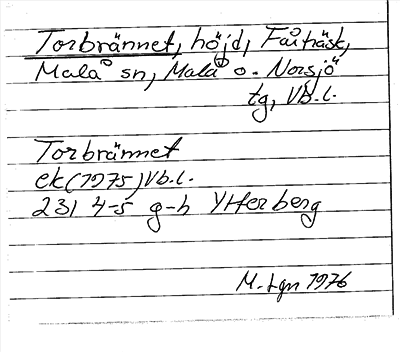 Torbrännet, höjd, Fårträsk,
Malå sn, Malå o. Norsjö
tg, Vb.l.
Torbrännet
ek (1975) Vb.l.
231 4-5 g-h Ytterberg
M. 1976